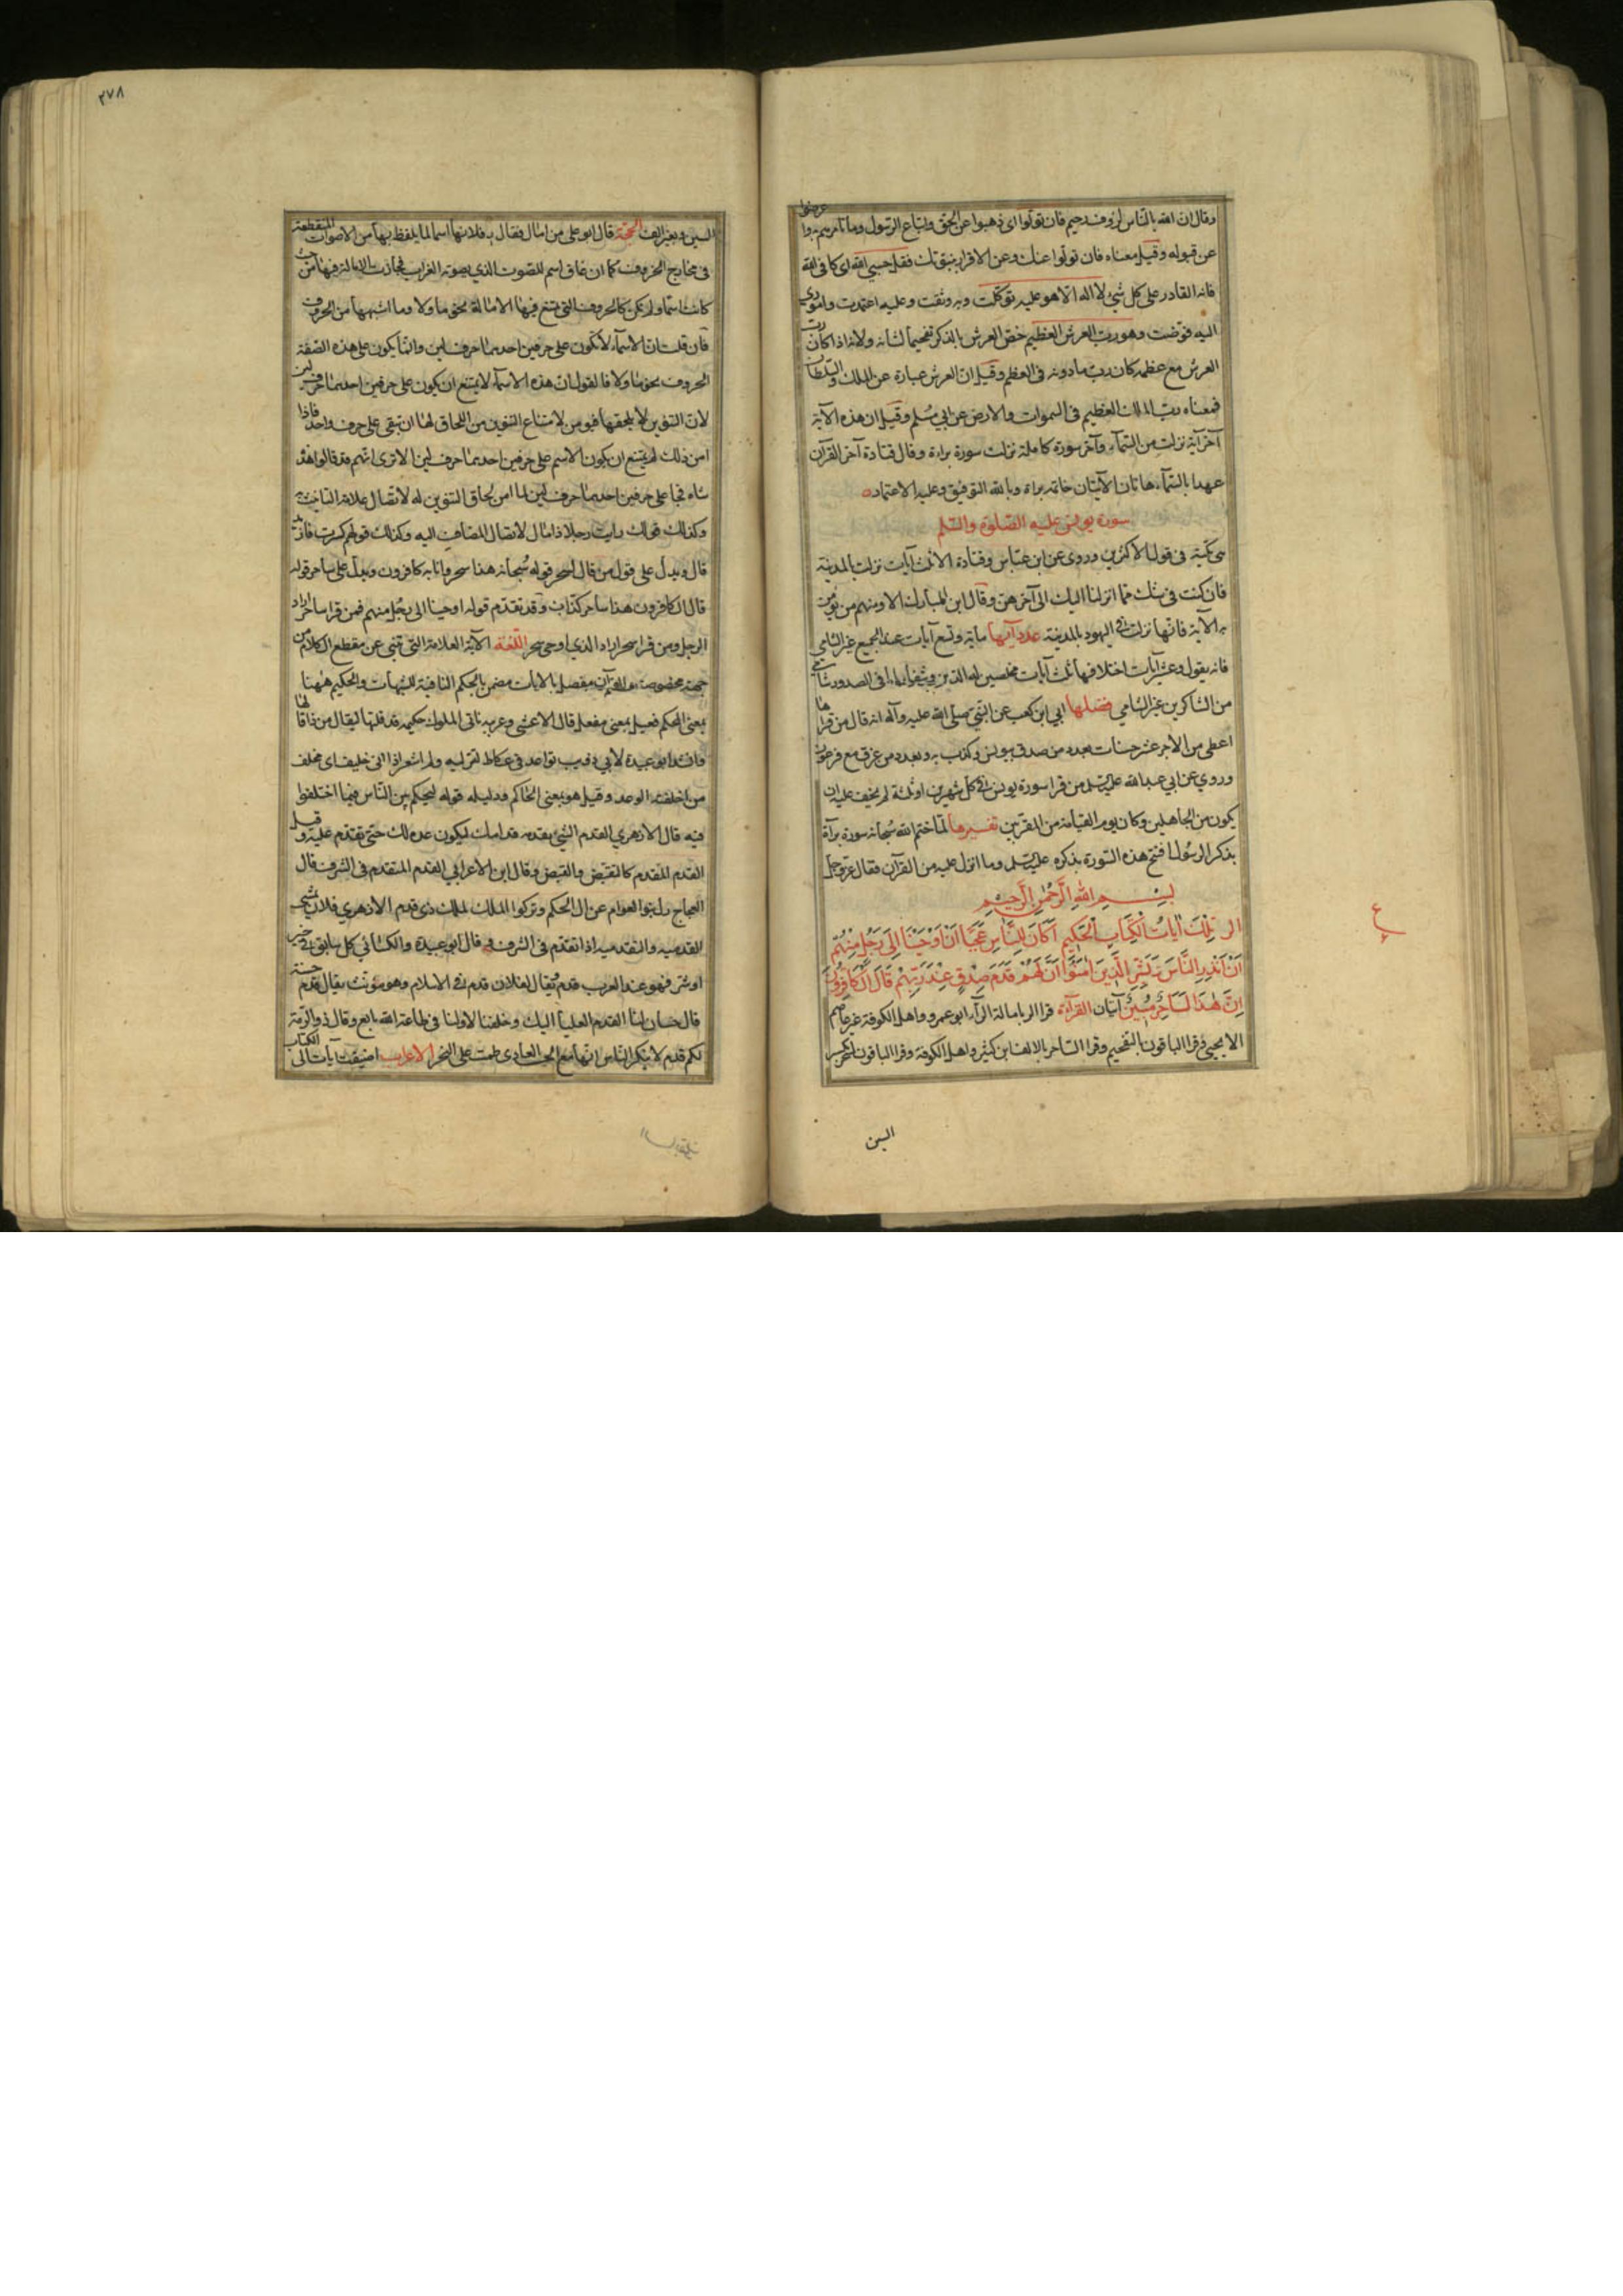 وقال ان الله بالناس لرؤف رحيم فان تولوا اى ذهبوا عن الحق واتباع الرسول وما يامرهم به واعرضوا
عن قبوله وقيل معناه فان تولوا عنك وعن الاقرار بنبوتك فقل حسبي الله اى كافى الله
فانه القادر على كل شئ لا اله الا هو عليه توكلت وبه وثقت وعليه اعتمدت واموري
اليه فوضت وهو رب العرش العظيم خص العرش بالذكر تفخيما لشانه ولانه اذا كان رب
العرش مع عظمه كان رب ما دونه فى العظم وقيل ان العرش عبارة عن الملك والسلطان
فمعناه رب الملك العظيم فى السموات والارض عن ابي مسلم وقيل ان هذه الآية
آخر آية نزلت من السماء وآخر سورة كاملة نزلت سورة براءة وقال قتادة آخر القرآن
عهدا بالسماء هاتان الآيتان خاتمة براءة وبالله التوفيق وعليه الاعتماد
سورة يونس عليه الصلوة والسلم
هى مكية فى قول الاكثرين وروى عن ابن عباس وقتادة الا ثلث آيات نزلت بالمدينة
فان كنت فى شك مما انزلنا اليك الى آخرهن وقال ابن المبارك الا ومنهم من يؤمن
به الآية فانها نزلت فى اليهود بالمدينة عدد آيها ماية وتسع آيات عند الجميع غير الشامي
فانه يقول وعشر آيات اختلافها ثلث آيات مخلصين له الدين وشفاء لما فى الصدور شامي
من الشاكرين غير الشامي فضلها ابي ابن كعب عن النبي صلى الله عليه وآله انه قال من قراها
اعطى من الاجر عشر حسنات بعدد من صدق بيونس وكذب به وبعدد من غرق مع فرعون
وروي عن ابي عبدالله عليه السلم من قرا سورة يونس فى كل شهرين او ثلثة لم يخف عليه ان
يكون من الجاهلين وكان يوم القيامة من المقربين تفسيرها لما ختم الله سبحانه سورة براءة
بذكر الرسول افتتح هذه السورة بذكره عليه السلم وما انزل عليه من القرآن فقال عز وجل
بسم الله الرحمن الرحيم
الر تلك آيات الكتاب الحكيم اكان للناس عجبا ان اوحينا الى رجل منهم
ان انذر الناس وبشر الذين امنوا ان لهم قدم صدق عند ربهم قال الكافرون
ان هذا لساحر مبين آيتان القرآءة قرا الر بامالة الرآء ابو عمرو واهل الكوفة غير عاصم
الا يحيى وقرا الباقون بالتفخيم وقرا لساحر بالالف ابن كثير واهل الكوفة وقرا الباقون لسحر بكسر
السين
٢٧٨
السين وبغير الف الحجة قال ابو على من امال فقال ر فلانها اسما لما يلفظ بها من الاصوات المتقطعة
فى مخارج الحروف كما ان غاق اسم للصوت الذي يصوته الغراب فجازت الامالة فيها من حيث
كانت اسما ولم يكن كالحروف التى يمتنع فيها الامالة نحو ما ولا وما اشبهها من الحروف
فان قلت ان الاسماء لا تكون على حرفين احدهما حرف لين وانما يكون على هذه الصفة
الحروف نحو ما ولا فالقول ان هذه الاسماء لا يمتنع ان يكون على حرفين احدهما حرف لين
لان التنوين لا يلحقها فيؤمن لامتناع التنوين من اللحاق لها ان تبقى على حرف واحد فاذا
امن ذلك لم يمتنع ان يكون الاسم على حرفين احدهما حرف لين الا ترى انهم قد قالوا هذه
شاه فجا على حرفين احدهما حرف لين لما امن لحاق التنوين له لاتصال علامة التانيث به
وكذلك قولك رايت رجلا ذا مال لاتصال المضاف اليه وكذلك قولهم
قال ويدل على قول من قال لسحر قوله سبحانه هذا سحر وانا به كافرون ويدل على ساحر قوله
قال الكافرون هذا ساحر كذاب وقد تقدم قوله اوحينا الى رجل منهم فمن قرا ساحر اراد
الرجل ومن قرا سحر اراد الذي اوحى سحر اللغة الآية العلامة التى تنبى عن مقطع الكلام من
جهة مخصوصة والقرآن مفصل بالايات مضمن بالحكم النافية للشبهات والحكيم ههنا
بمعنى المحكم فعيل بمعنى مفعل قال الاعشى وغريبة تاتى الملوك حكيمة قد قلتها ليقال من ذا قالها
وانشد ابو عبيدة لابي ذويب تواعد فى عكاظ لننزلنه ولم تشعر اذا انى خليف اى مخلف
من اخلفته الوعد وقيل هو بمعنى الحاكم ودليله قوله ليحكم بين الناس فيما اختلفوا
فيه قال الازهري القدم الشئ يقدمه قدامك ليكون عدة لك حتى تقدم عليه وقيل
القدم المقدم كالنقض والقبض وقال ابن الاعرابي القدم المتقدم فى الشرف قال
العجاج زل بنو العوام عن ال الحكم وتركوا الملك لملك ذى قدم الازهري فلان يمشى
القدمية والتقدمية اذا تقدم فى الشرف قال ابو عبيدة والكسائي كل سابق فى خير
او شر فهو عند العرب قدم يقال لفلان قدم فى الاسلام وهو مؤنث يقال قدم حسنة
قال حسان لنا القدم العليا اليك وخلفنا لاولنا فى طاعة الله تابع وقال ذو الرمة
لكم قدم لا ينكر الناس انها مع الحسب العادى طمت على البحر الاعراب اضيفت آيات الى الكتاب